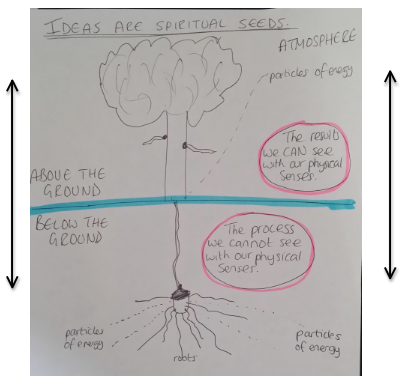 IDEAS ARE SPIRITUAL SEEDS.
ATMOSPHERE
particles of energy
The results
we CAN see
with our physical
senses.
ABOVE THE
GROUND
BELOW THE
GROUND
The process
we cannot see
with our physical
senses.
particles
of energy
roots
particles
of energy